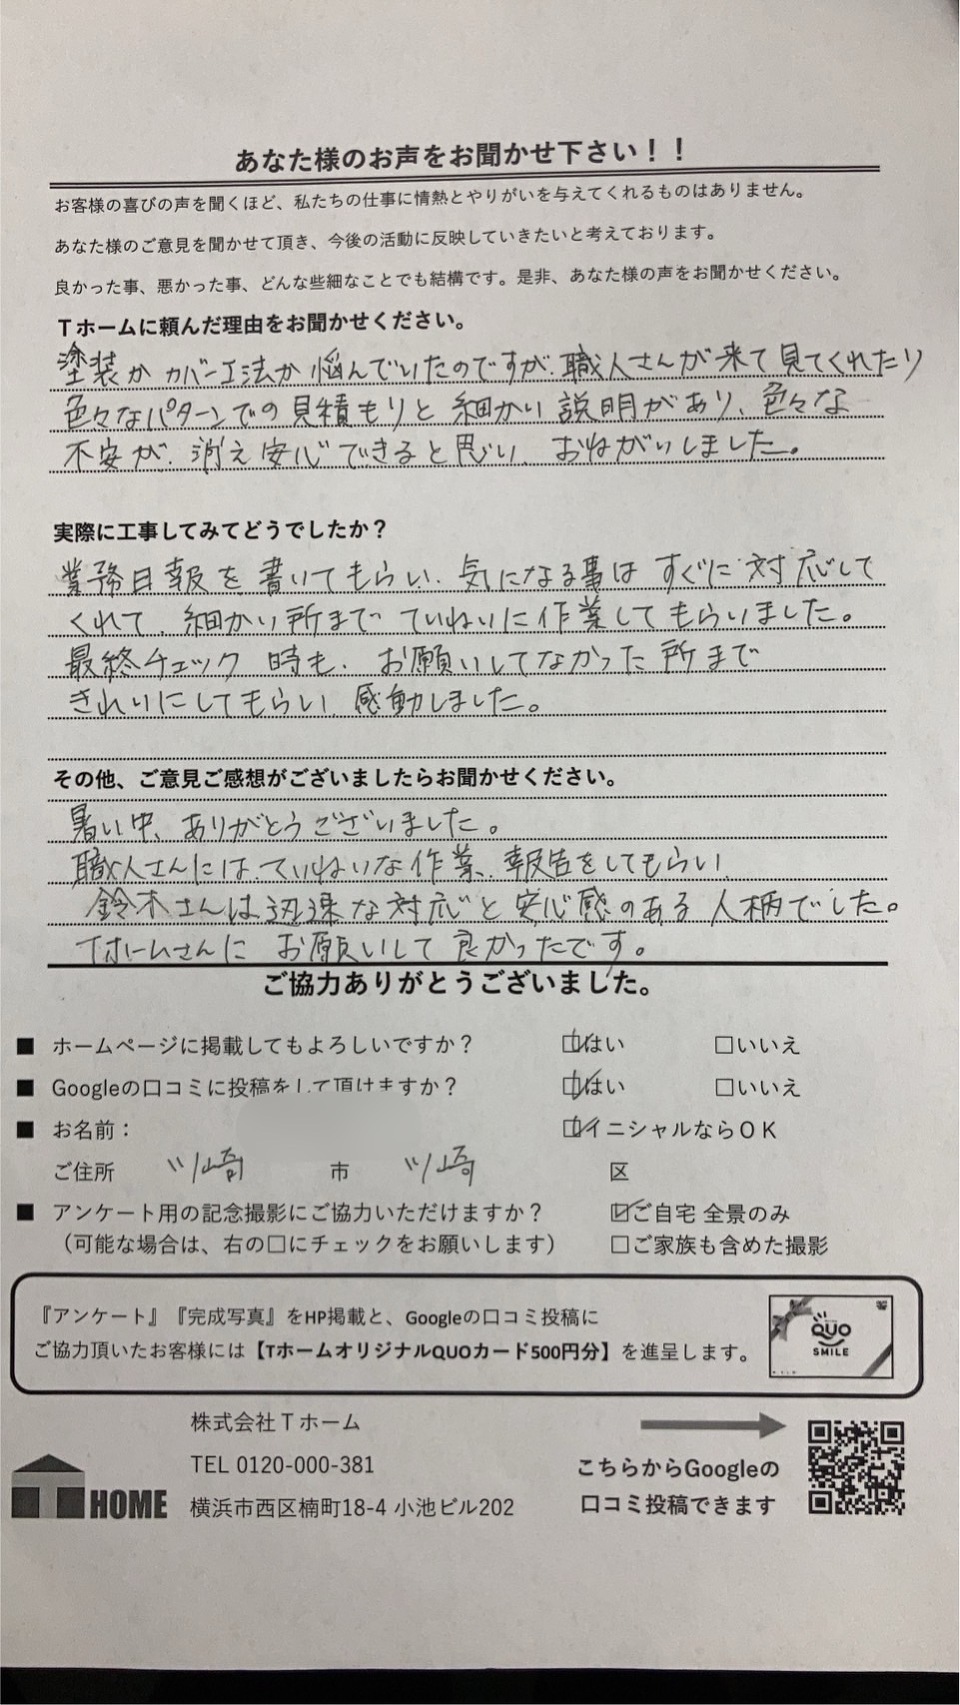 あなた様のお声をお聞かせ下さい！！
お客様の喜びの声を聞くほど、私たちの仕事に情熱とやりがいを与えてくれるものはありません。
あなた様のご意見を聞かせて頂き、今後の活動に反映していきたいと考えております。
良かった事、悪かった事、どんな些細なことでも結構です。是非、あなた様の声をお聞かせください。
Ｔホームに頼んだ理由をお聞かせください。
塗装か カバー工法か 悩んでいたのですが、職人さんが 来て 見てくれたり
色々なパターンでの見積もりと 細かい 説明があり、色々な
不安が、消え 安心できると思い、おねがいしました。
実際に工事してみてどうでしたか？
業務日報を書いてもらい、気になる事は すぐに 対応して
くれて、細かい所まで ていねいに作業してもらいました。
最終チェック 時も、お願いしてなかった所まで
きれいにしてもらい、感動しました。
その他、ご意見ご感想がございましたらお聞かせください。
暑い中、ありがとうございました。
職人さんには、ていねいな作業、報告をしてもらい、
鈴木さんは迅速な対応と 安心感のある 人柄でした。
Tホームさんに お願いして 良かったです。
ご協力ありがとうございました。
■ ホームページに掲載してもよろしいですか？ ☑はい □いいえ
■ Googleの口コミに投稿をして頂けますか？ ☑はい □いいえ
■ お名前： ☑イニシャルならＯＫ
ご住所 川崎 市 川崎 区
■ アンケート用の記念撮影にご協力いただけますか？ ☑ご自宅 全景のみ
（可能な場合は、右の□にチェックをお願いします） □ご家族も含めた撮影
『アンケート』『完成写真』をHP掲載と、Googleの口コミ投稿に
ご協力頂いたお客様には【TホームオリジナルQUOカード500円分】を進呈します。
QUO
SMILE
株式会社Ｔホーム
TEL 0120-000-381
横浜市西区楠町18-4 小池ビル202
T HOME
こちらからGoogleの
口コミ投稿できます